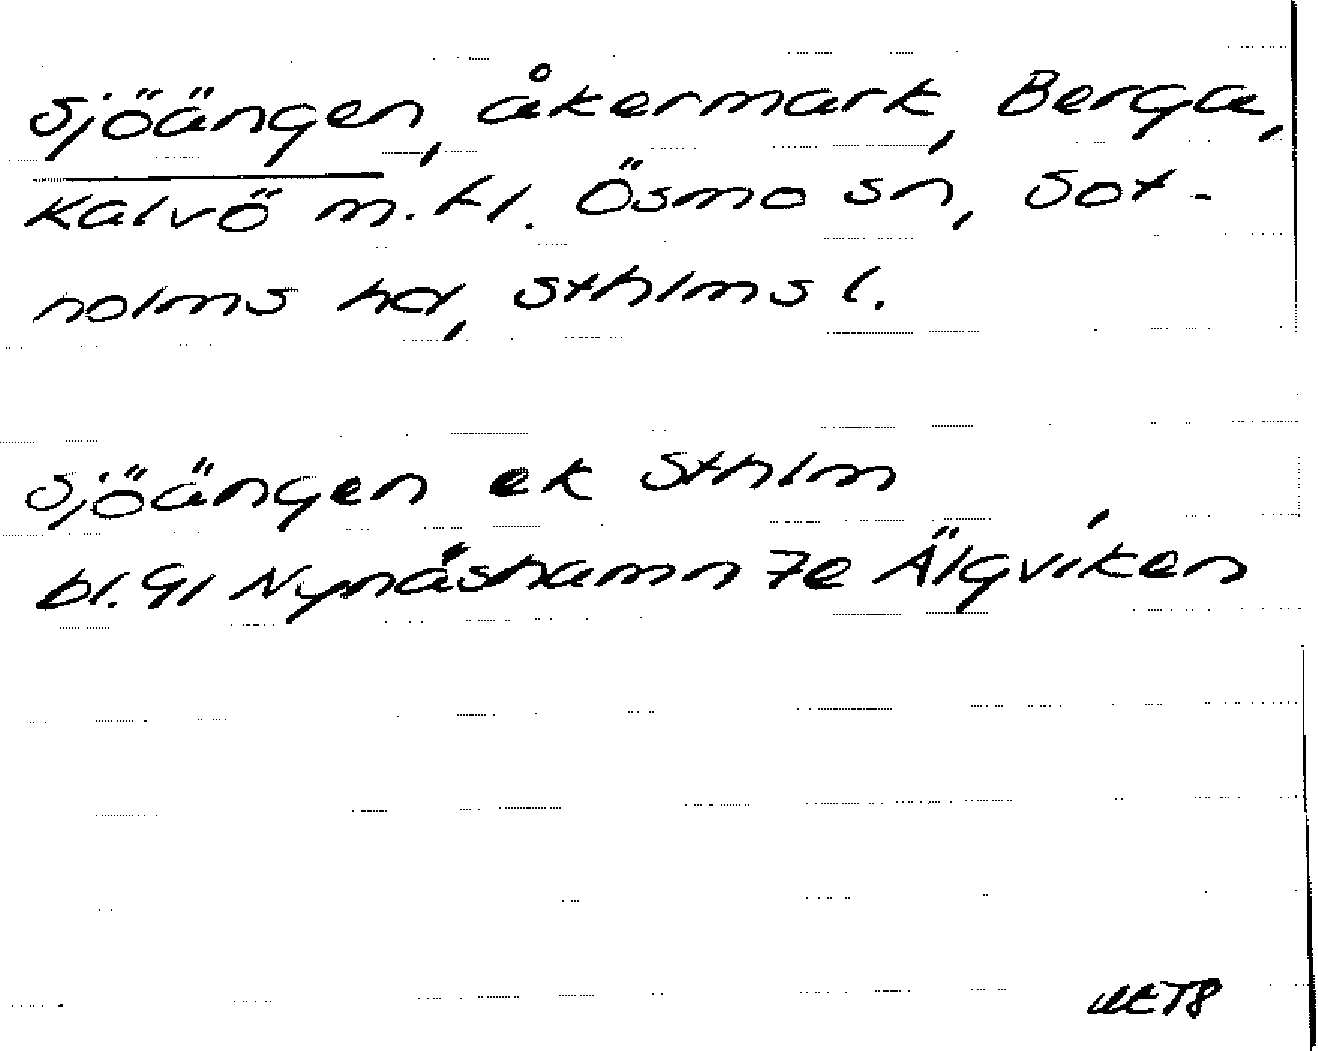 Sjöängen, åkermark, Berga,
Kalvö m.fl. Ösmo sn, Sot-
holms hd, Sthlms l.
Sjöängen ek Sthlm
bl. 91 Nynäshamn 7e Älgviken